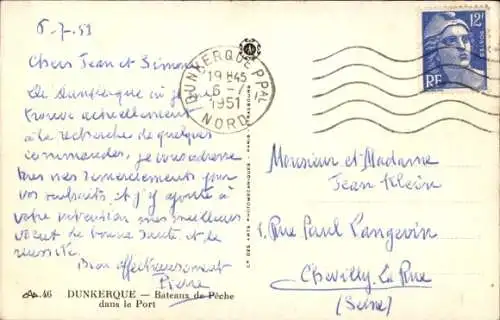 6-7-51
Chers Jean et Simone
De Dunkerque où je me
trouve actuellement
à la recherche de quelques
commandes, je vous adresse
mes remerciements pour
vos souhaits, et j'y ajoute à
votre intention mes meilleurs
vœux de bonne santé et de
réussite.
Bien affectueusement
Pierre
46 DUNKERQUE — Bateaux de Pêche
dans le Port
Cie DES ARTS PHOTOMÉCANIQUES - PARIS - STRASBOURG
DUNKERQUE PPAL
19 H45
6-7
1951
NORD
12F
POSTES
RF
Monsieur et Madame
Jean Klein
1. Rue Paul Langevin
Chevilly. La Rue
(Seine)